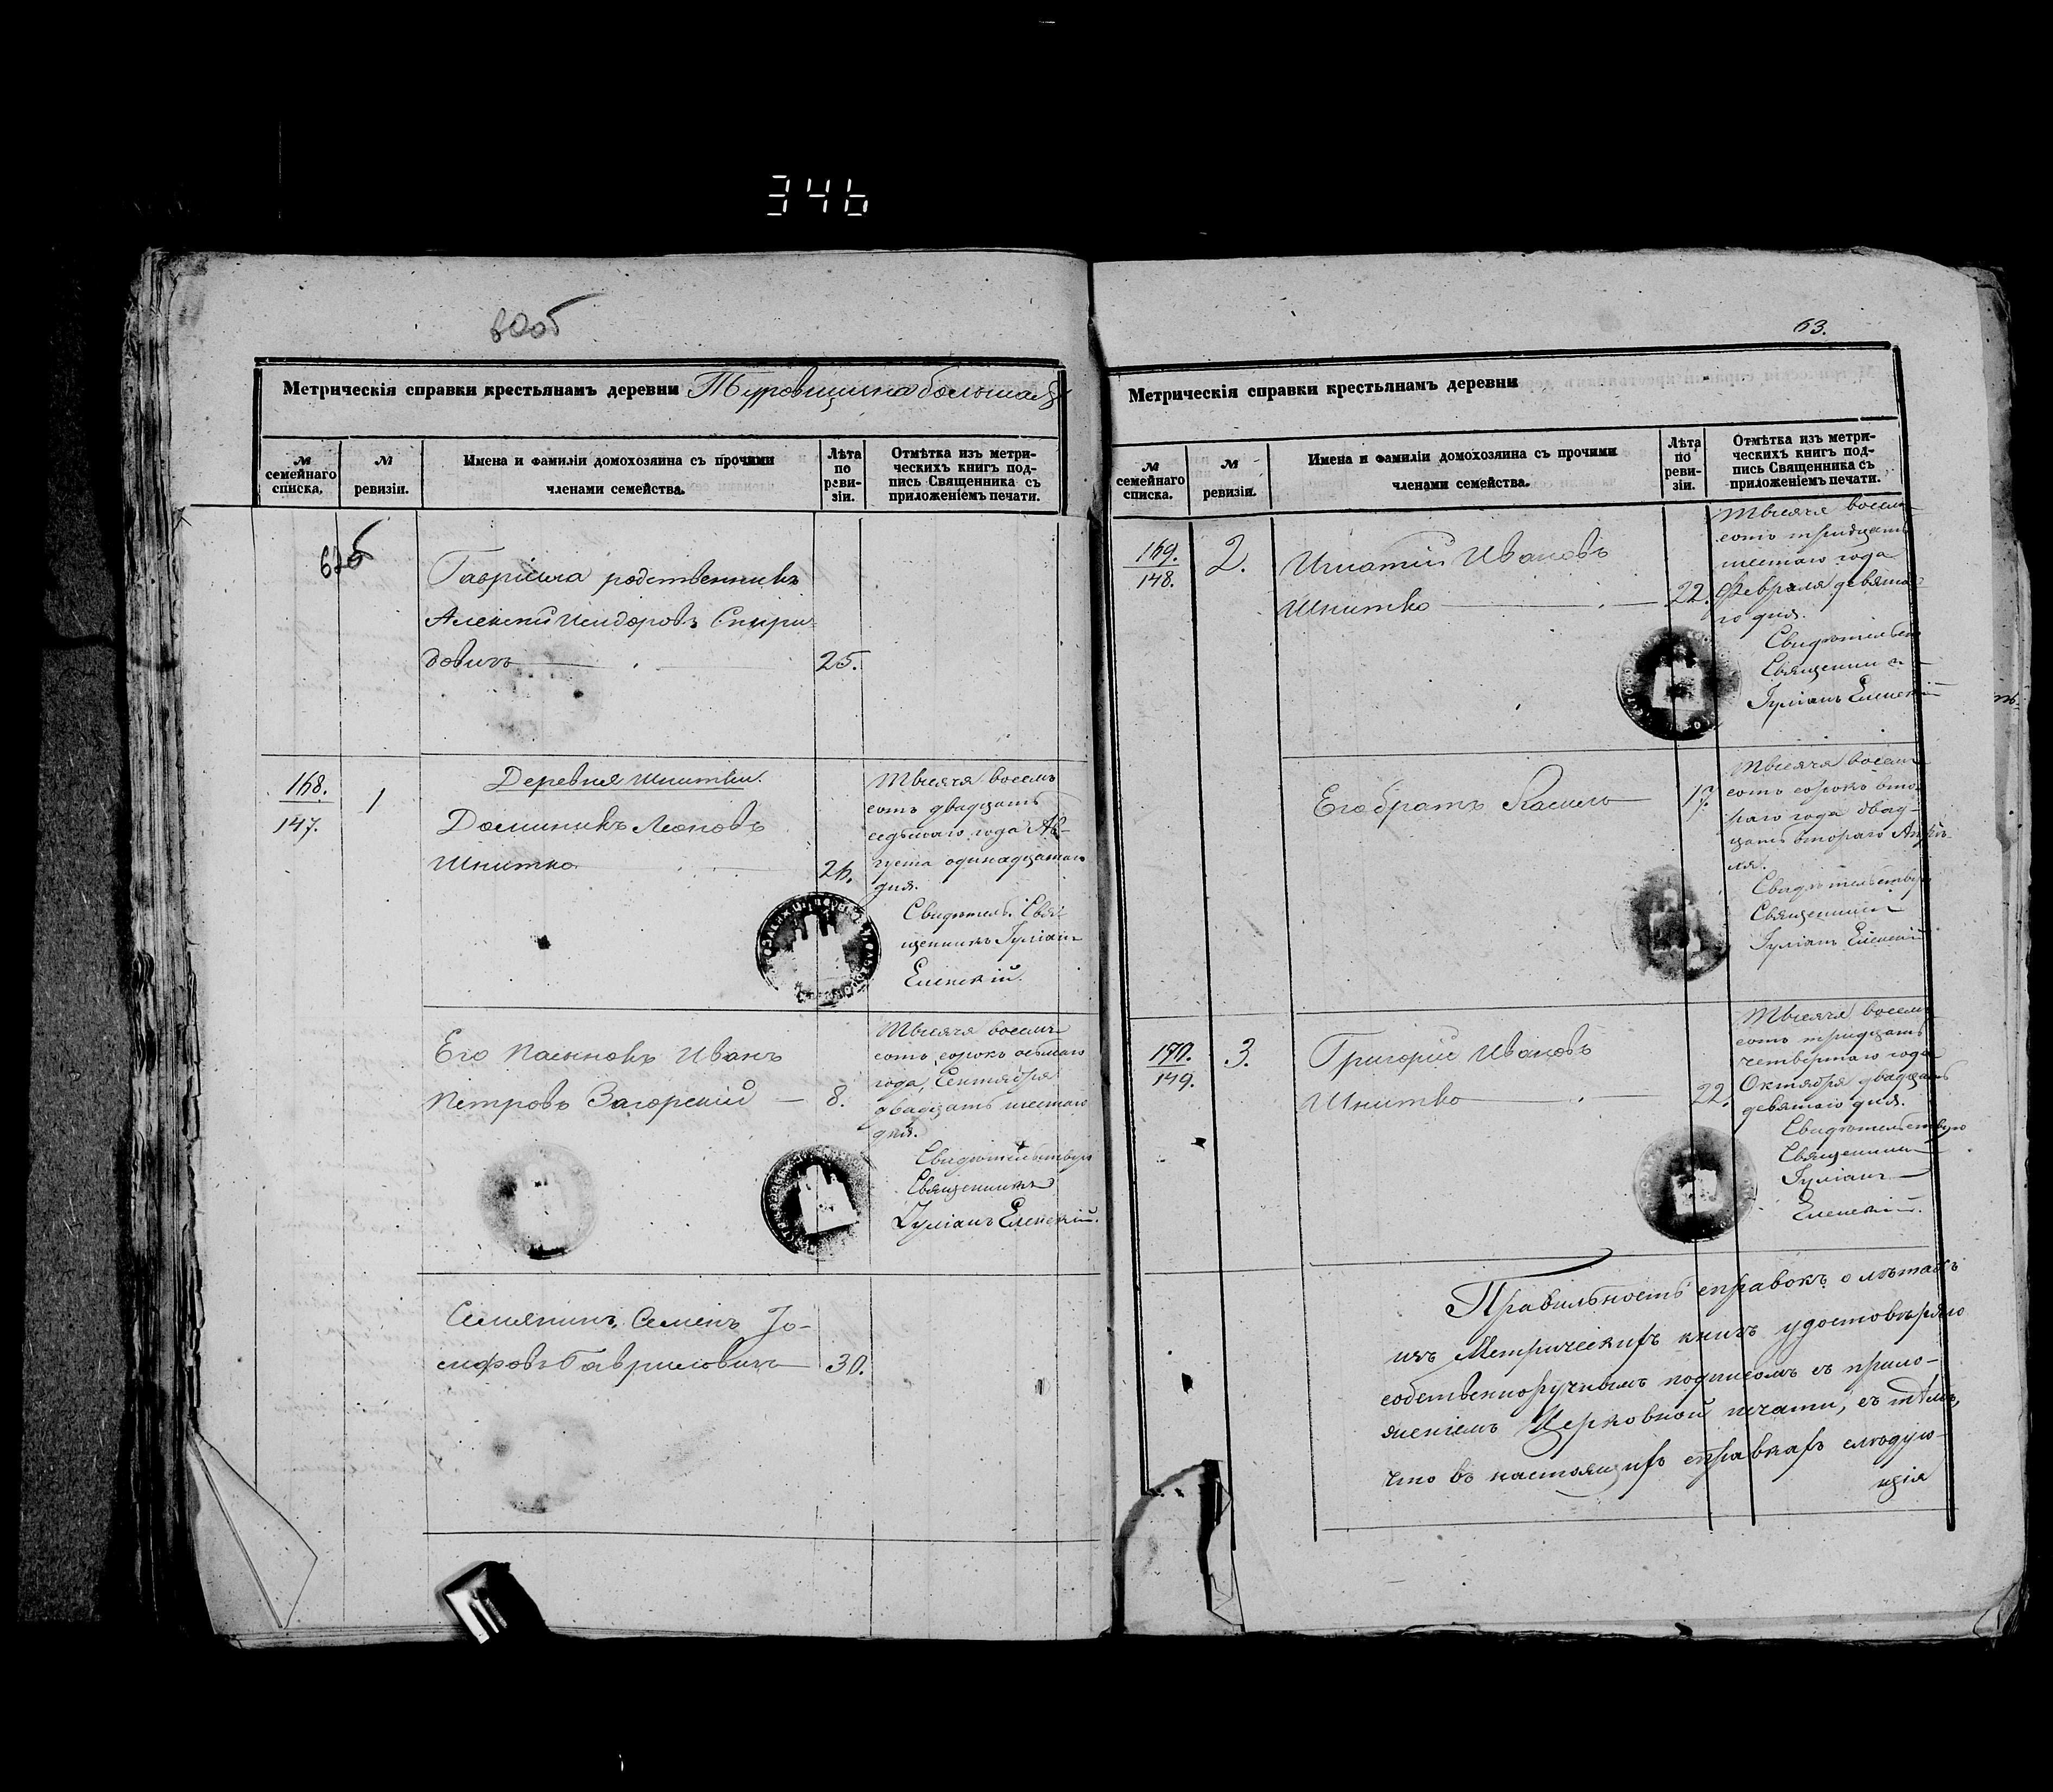 346
62об
Метрическія справки крестьянамъ деревни Туровщизна большая
№ семейнаго списка.
№ ревизіи.
Имена и фамиліи домохозяина съ прочими членами семейства.
Лѣта по реви-зіи.
Отмѣтка изъ метри-
ческихъ книгъ под-
пись Священника съ
приложеніемъ печати.
62об
Гавріила родственникъ
Алексѣй Исидоровъ Спири-
довичъ 25.
168.
147.
1
Деревня Шнитки.
Доминикъ Леоновъ
Шнитко 26.
Тысяча восемь
сотъ двадцать
седьмаго года Ав-
густа одинадцатаго
дня.
Свидѣтель. Свя-
щенникъ Іуліанъ
Еленскій.
Его пасынокъ Иванъ
Петровъ Загорскій — 8.
Тысяча восемь
сотъ сорокъ осьмаго
года, Сентября
двадцать шестаго
дня.
Свидѣтельствую
Священникъ
Іуліанъ Еленскій.
Семянинъ, Семенъ Іо-
сифовъ Гавриловичъ 30.
63.
Метрическія справки крестьянамъ деревни
№ семейнаго списка.
№ ревизіи.
Имена и фамиліи домохозяина съ прочими членами семейства.
Лѣта по реви-зіи.
Отмѣтка изъ метри-
ческихъ книгъ под-
пись Священника съ
приложеніемъ печати.
169.
148.
2.
Игнатій Ивановъ
Шнитко 22.
Тысяча восемь
сотъ тридцать
шестаго года
Февраля девята-
го дня.
Свидѣтельст
Священни к
Іуліанъ Еленскій
Его братъ 17.
Тысяча восемь
сотъ сорокъ вто-
раго года двад-
цать втораго Апрѣ-
ля.
Свидѣтельствую
Священникъ
Іуліанъ Еленскій
170.
149.
3.
Григорій Ивановъ
Шнитко 22.
Тысяча восемь
сотъ тридцать
четвертаго года
Октября двадцать
девятаго дня.
Свидѣтельствую
Священникъ
Іуліанъ
Еленскій.
Правильность справокъ о лѣтахъ
изъ Метрическихъ книгъ удостовѣряю
собственноручнымъ подписомъ съ прило-
женіемъ Церковной печати, съ тѣмъ,
что въ настоящихъ справкахъ слѣдую-
щія